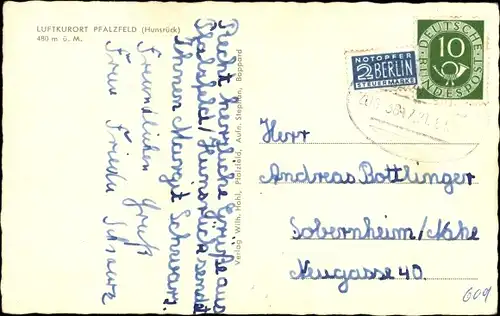 LUFTKURORT PFALZFELD (Hunsrück)
480 m ü. M.
Recht herzliche Grüße aus
Pfalzfeld/Hunsrück sendet
Ihnen Margit Schwarz.
Freundlichen Gruß
Frau Frieda Schwarz
Verlag Wilh. Hohl, Pfalzfeld, Aufn. Stephan, Boppard
NOTOPFER
2 BERLIN
STEUERMARKE
DEUTSCHE BUNDESPOST
10
Herr
Andreas Bottlinger
Sobernheim/Nahe
Neugasse 40.
609